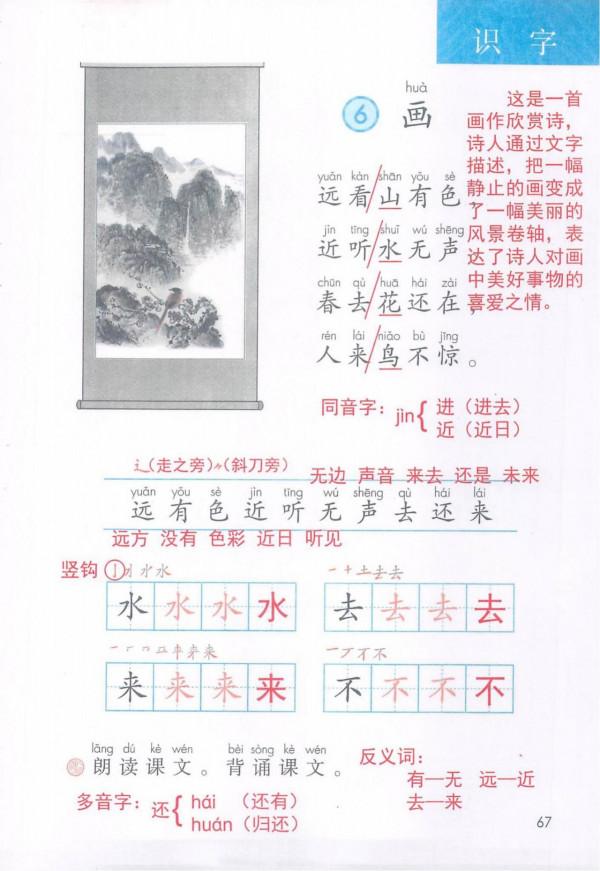 识 字
huà
6 画
这是一首
画作欣赏诗，
诗人通过文字
描述，把一幅
静止的画变成
了一幅美丽的
风景卷轴，表
达了诗人对画
中美好事物的
喜爱之情。
yuǎn kàn shān yǒu sè
远看/山有色，
jìn tīng shuǐ wú shēng
近听/水无声。
chūn qù huā hái zài
春去/花还在，
rén lái niǎo bù jīng
人来/鸟不惊。
同音字：jìn{ 进（进去）
近（近日）
辶（走之旁）〃（斜刀旁）
无边 声音 来去 还是 未来
yuǎn yǒu sè jìn tīng wú shēng qù hái lái
远 有 色 近 听 无 声 去 还 来
远方 没有 色彩 近日 听见
竖钩 亅
水 水 水 水
去 去 去 去
来 来 来 来
不 不 不 不
lǎng dú kè wén bèi sòng kè wén
朗读课文。背诵课文。
反义词：
有—无 远—近
去—来
多音字：还{ hái （还有）
huán（归还）
67